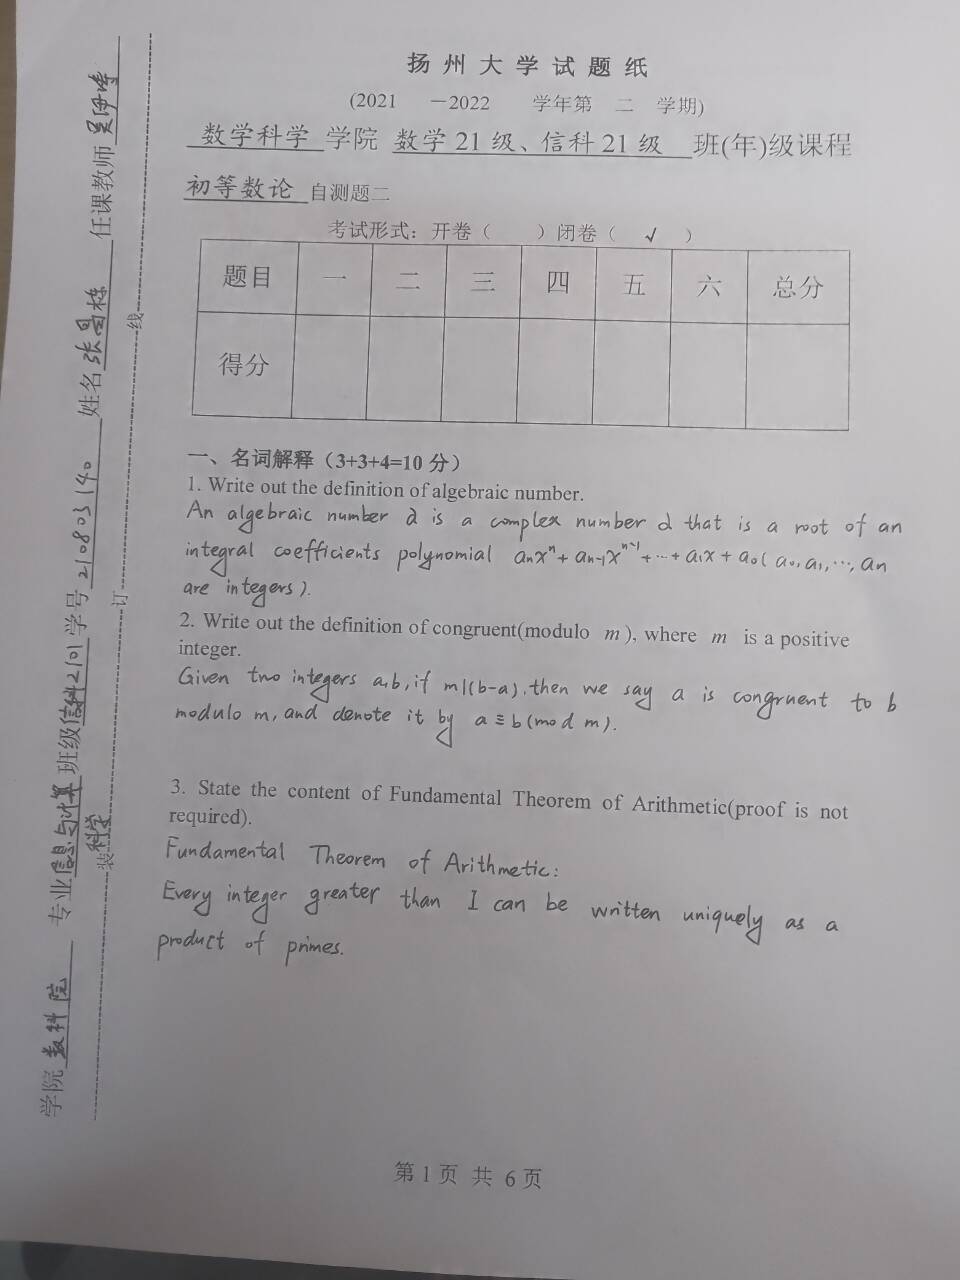 扬州大学试题纸
(2021 －2022 学年第 二 学期)
数学科学 学院 数学21级、信科21级 班(年)级课程
初等数论 自测题二
考试形式：开卷（ ）闭卷（ √ ）
题目 一 二 三 四 五 六 总分
得分
一、名词解释（3+3+4=10 分）
1. Write out the definition of algebraic number.
An algebraic number α is a complex number α that is a root of an
integral coefficients polynomial aₙxⁿ+aₙ₋₁xⁿ⁻¹+⋯+a₁x+a₀(a₀,a₁,⋯,aₙ
are integers).
2. Write out the definition of congruent(modulo m), where m is a positive
integer.
Given two integers a,b, if m|(b-a), then we say a is congruent to b
modulo m, and denote it by a≡b(mod m).
3. State the content of Fundamental Theorem of Arithmetic(proof is not
required).
Fundamental Theorem of Arithmetic:
Every integer greater than 1 can be written uniquely as a
product of primes.
第1页 共6页
学院 数科院 专业 信息与计算科学 班级 信科2101 学号 210803140 姓名 张昌栋 任课教师
装 订 线